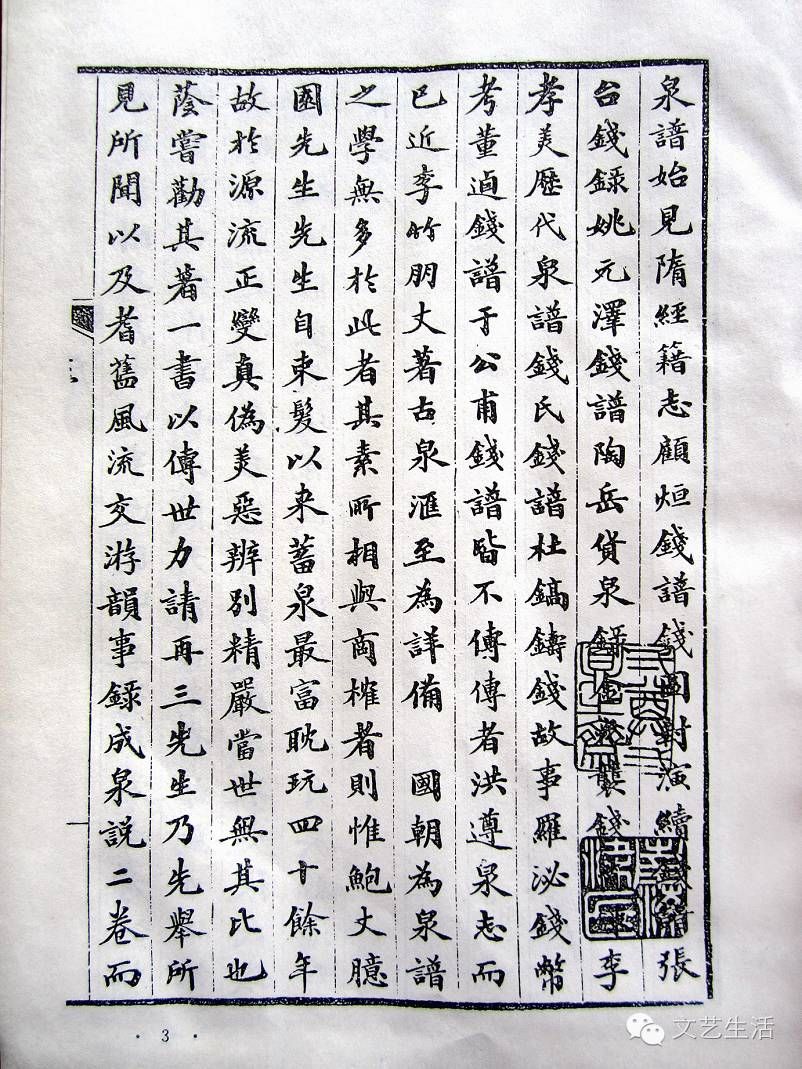 泉譜始見隋經籍志顧烜錢譜錢圖封演續錢譜張
台錢錄姚元澤錢譜陶岳貨泉錄金光襲錢李
孝美歷代泉譜錢氏錢譜杜鎬鑄錢故事羅泌錢幣
考董逌錢譜于公甫錢譜皆不傳傳者洪遵泉志而
已近李竹朋丈著古泉滙至為詳備　國朝為泉譜
之學無多於此者其素所相與商榷者則惟鮑丈臆
園先生先生自束髮以來蓄泉最富耽玩四十餘年
故於源流正變真偽美惡辨別精嚴當世無其比也
蔭嘗勸其著一書以傳世力請再三先生乃先舉所
見所聞以及耆舊風流交游韻事錄成泉說二卷而
· 3 ·
文艺生活